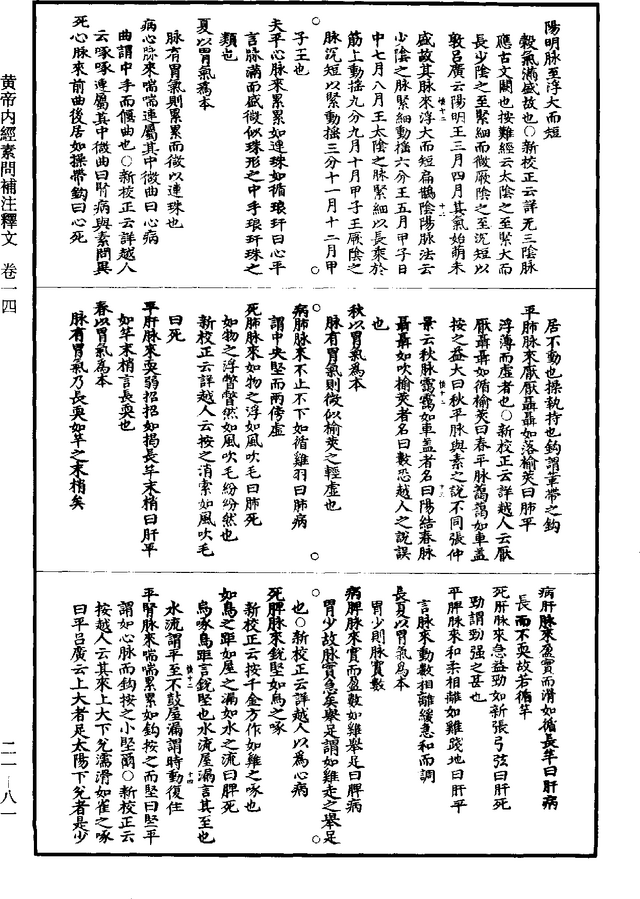 陽明脉至浮大而短
穀氣滿盛故也〇新校正云詳无三陰脉
應古文闕也按難經云太陰之至緊大而
長少陰之至緊細而微厥陰之至沉短以
敦呂廣云陽明王三月四月其氣始萌未
盛故其脉來浮大而短扁鵲陰陽脉法云
少陰之脉緊細動搖六分王五月甲子日
中七月八月王太陰之脉緊細以長乘於
筋上動搖九分九月十月甲子王厥陰之
脉沉短以緊動搖三分十一月十二月甲
子王也
夫平心脉來累累如連珠如循琅玕曰心平
言脉滿而盛微似珠形之中手琅玕珠之
類也
夏以胃氣爲本
脉有胃氣則累累而微以連珠也
病心脉來喘喘連屬其中微曲曰心病
曲謂中手而偃曲也〇新校正云詳越人
云啄啄連屬其中微曲曰腎病與素問異
死心脉來前曲後居如操帶鈎曰心死
居不動也操執持也鈎謂革帶之鈎
平肺脉來厭厭聶聶如落榆莢曰肺平
浮薄而虛者也〇新校正云詳越人云厭
厭聶聶如循榆莢曰春平脉藹藹如車盖
按之益大曰秋平脉與素之說不同張仲
景云秋脉靄靄如車盖者名曰陽結春脉
聶聶如吹榆莢者名曰數恐越人之說誤
也
秋以胃氣爲本
脉有胃氣則微似榆莢之輕虛也
病肺脉來不止不下如循雞羽曰肺病
謂中央堅而兩傍虛
死肺脉來如物之浮如風吹毛曰肺死
如物之浮瞥瞥然如風吹毛紛紛然也
新校正云詳越人云按之消索如風吹毛
曰死
平肝脉來耎弱招招如揭長竿末梢曰肝平
如竿末梢言長耎也
春以胃氣爲本
脉有胃氣乃長耎如竿之末梢矣
病肝脉來盈實而滑如循長竿曰肝病
長而不耎故若循竿
死肝脉來急益勁如新張弓弦曰肝死
勁謂勁强之甚也
平脾脉來和柔相離如雞踐地曰肝平
言脉來動數相離緩急和而調
長夏以胃氣爲本
胃少則脉實數
病脾脉來實而盈數如雞舉足曰脾病
胃少故脉實急矣舉足謂如雞走之舉足
也〇新校正云詳越人以爲心病
死脾脉來銳堅如鳥之啄
新校正云按千金方作如雞之啄也
如鳥之距如屋之漏如水之流曰脾死
鳥啄鳥距言銳堅也水流屋漏言其至也
水流謂平至不鼓屋漏謂時動復住
平腎脉來喘喘累累如鈎按之而堅曰堅平
謂如心脉而鈎按之小堅爾〇新校正云
按越人云其來上大下兌濡滑如雀之啄
曰平呂廣云上大者足太陽下兌者是少
黄帝内經素問補注釋文　卷一四
二一—八一